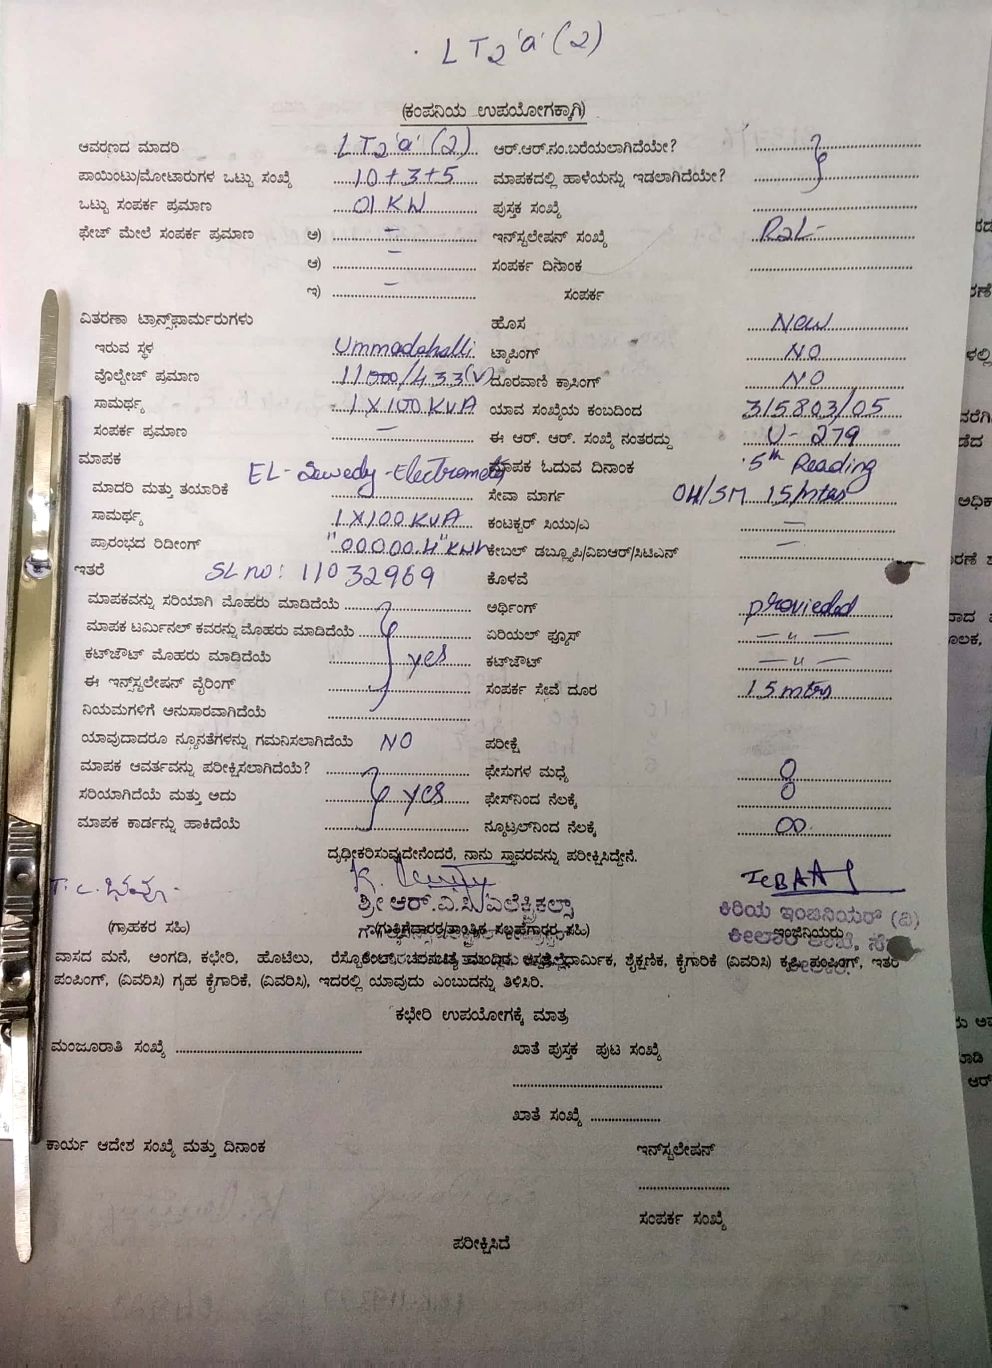 LT2 'a' (2)
(ಕಂಪನಿಯ ಉಪಯೋಗಕ್ಕಾಗಿ)
ಆವರಣದ ಮಾದರಿ LT2 'a' (2) ಆರ್.ಆರ್.ನಂ.ಬರೆಯಲಾಗಿದೆಯೇ?
ಪಾಯಿಂಟು/ಮೋಟಾರುಗಳ ಒಟ್ಟು ಸಂಖ್ಯೆ 10+3+5 ಮಾಪಕದಲ್ಲಿ ಹಾಳೆಯನ್ನು ಇಡಲಾಗಿದೆಯೇ?
ಒಟ್ಟು ಸಂಪರ್ಕ ಪ್ರಮಾಣ 01 KW ಪುಸ್ತಕ ಸಂಖ್ಯೆ
ಫೇಜ್ ಮೇಲೆ ಸಂಪರ್ಕ ಪ್ರಮಾಣ ಅ) – ಇನ್‌ಸ್ಟಲೇಷನ್ ಸಂಖ್ಯೆ R2L-
ಆ) – ಸಂಪರ್ಕ ದಿನಾಂಕ
ಇ) – ಸಂಪರ್ಕ
ವಿತರಣಾ ಟ್ರಾನ್ಸ್‌ಫಾರ್ಮರುಗಳು ಹೊಸ New
ಇರುವ ಸ್ಥಳ Ummadahalli ಟ್ಯಾಪಿಂಗ್ NO
ವೊಲ್ಟೇಜ್ ಪ್ರಮಾಣ 11000/433(V) ದೂರವಾಣಿ ಕ್ರಾಸಿಂಗ್ NO
ಸಾಮರ್ಥ್ಯ 1X100 KVA ಯಾವ ಸಂಖ್ಯೆಯ ಕಂಬದಿಂದ 315803/05
ಸಂಪರ್ಕ ಪ್ರಮಾಣ – ಈ ಆರ್. ಆರ್. ಸಂಖ್ಯೆ ನಂತರದ್ದು U-279
ಮಾಪಕ EL-Sewedy-Electrometer ಮಾಪಕ ಓದುವ ದಿನಾಂಕ 5th Reading
ಮಾದರಿ ಮತ್ತು ತಯಾರಿಕೆ ಸೇವಾ ಮಾರ್ಗ OH/SM 15 mtrs
ಸಾಮರ್ಥ್ಯ 1X100 KVA ಕಂಟಕ್ಟರ್ ಸಿಯು/ಎ –
ಪ್ರಾರಂಭದ ರಿಡೀಂಗ್ "00000.4" KWh ಕೇಬಲ್ ಡಬ್ಲ್ಯೂಪಿ/ವಿಐಆರ್/ಸಿಟಿಎನ್ –
ಇತರೆ SL no: 11032969 ಕೊಳವೆ
ಮಾಪಕವನ್ನು ಸರಿಯಾಗಿ ಮೊಹರು ಮಾಡಿದೆಯೆ ಅರ್ಥಿಂಗ್ provieded
ಮಾಪಕ ಟರ್ಮಿನಲ್ ಕವರನ್ನು ಮೊಹರು ಮಾಡಿದೆಯೆ ಏರಿಯಲ್ ಫ್ಯೂಸ್ – " –
ಕಟ್‌ಜೌಟ್ ಮೊಹರು ಮಾಡಿದೆಯೆ yes ಕಟ್‌ಜೌಟ್ – " –
ಈ ಇನ್‌ಸ್ಟಲೇಷನ್ ವೈರಿಂಗ್ ಸಂಪರ್ಕ ಸೇವೆ ದೂರ 15 mtrs
ನಿಯಮಗಳಿಗೆ ಆನುಸಾರವಾಗಿದೆಯೆ
ಯಾವುದಾದರೂ ನ್ಯೂನತೆಗಳನ್ನು ಗಮನಿಸಲಾಗಿದೆಯೆ NO ಪರೀಕ್ಷೆ
ಮಾಪಕ ಆವರ್ತವನ್ನು ಪರೀಕ್ಷಿಸಲಾಗಿದೆಯೆ? ಫೇಸುಗಳ ಮಧ್ಯೆ
ಸರಿಯಾಗಿದೆಯೆ ಮತ್ತು ಅದು yes ಫೇಸ್‌ನಿಂದ ನೆಲಕ್ಕೆ
ಮಾಪಕ ಕಾರ್ಡನ್ನು ಹಾಕಿದೆಯೆ ನ್ಯೂಟ್ರಲ್‌ನಿಂದ ನೆಲಕ್ಕೆ ∞
ದೃಢೀಕರಿಸುವುದೇನೆಂದರೆ, ನಾನು ಸ್ಥಾವರವನ್ನು ಪರೀಕ್ಷಿಸಿದ್ದೇನೆ.
ಶ್ರೀ ಆರ್.ವಿ.ಸಿ ಎಲೆಕ್ಟ್ರಿಕಲ್ಸ್ ಕಿರಿಯ ಇಂಜಿನಿಯರ್ (ವಿ)
(ಗ್ರಾಹಕರ ಸಹಿ) (ಗುತ್ತಿಗೆದಾರರ/ತಾಂತ್ರಿಕ ಸಲಹೆಗಾರರ ಸಹಿ) ಇಂಜಿನಿಯರು
ವಾಸದ ಮನೆ, ಅಂಗಡಿ, ಕಛೇರಿ, ಹೊಟೆಲು, ರೆಸ್ಟೊರೆಂಟ್, ಚಲನಚಿತ್ರ ಮಂದಿರ, ಆಸ್ಪತ್ರೆ, ಧಾರ್ಮಿಕ, ಶೈಕ್ಷಣಿಕ, ಕೈಗಾರಿಕೆ (ವಿವರಿಸಿ) ಕೃಷಿ ಪಂಪಿಂಗ್, ಇತರೆ
ಪಂಪಿಂಗ್, (ವಿವರಿಸಿ) ಗೃಹ ಕೈಗಾರಿಕೆ, (ವಿವರಿಸಿ), ಇದರಲ್ಲಿ ಯಾವುದು ಎಂಬುದನ್ನು ತಿಳಿಸಿರಿ.
ಕಛೇರಿ ಉಪಯೋಗಕ್ಕೆ ಮಾತ್ರ
ಮಂಜೂರಾತಿ ಸಂಖ್ಯೆ ಖಾತೆ ಪುಸ್ತಕ ಪುಟ ಸಂಖ್ಯೆ
ಖಾತೆ ಸಂಖ್ಯೆ
ಕಾರ್ಯ ಆದೇಶ ಸಂಖ್ಯೆ ಮತ್ತು ದಿನಾಂಕ ಇನ್‌ಸ್ಟಲೇಷನ್
ಸಂಪರ್ಕ ಸಂಖ್ಯೆ
ಪರೀಕ್ಷಿಸಿದೆ